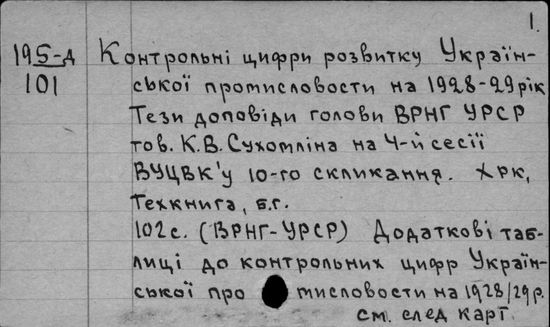 1.
195-д Контрольні цифри розвитку Україн-
101 ської промисловости на 1928-29 рік
Тези доповіди голови ВРНГ УРСР
тов. К.В. Сухомліна на 4-й сесії
ВУЦВК'у 10-го скликання. Хрк,
Техкнига, б.г.
102 с. (ВРНГ-УРСР) Додаткові таб-
лиці до контрольних цифр Україн-
ської промисловости на 1928/29 р.
см. след карт.